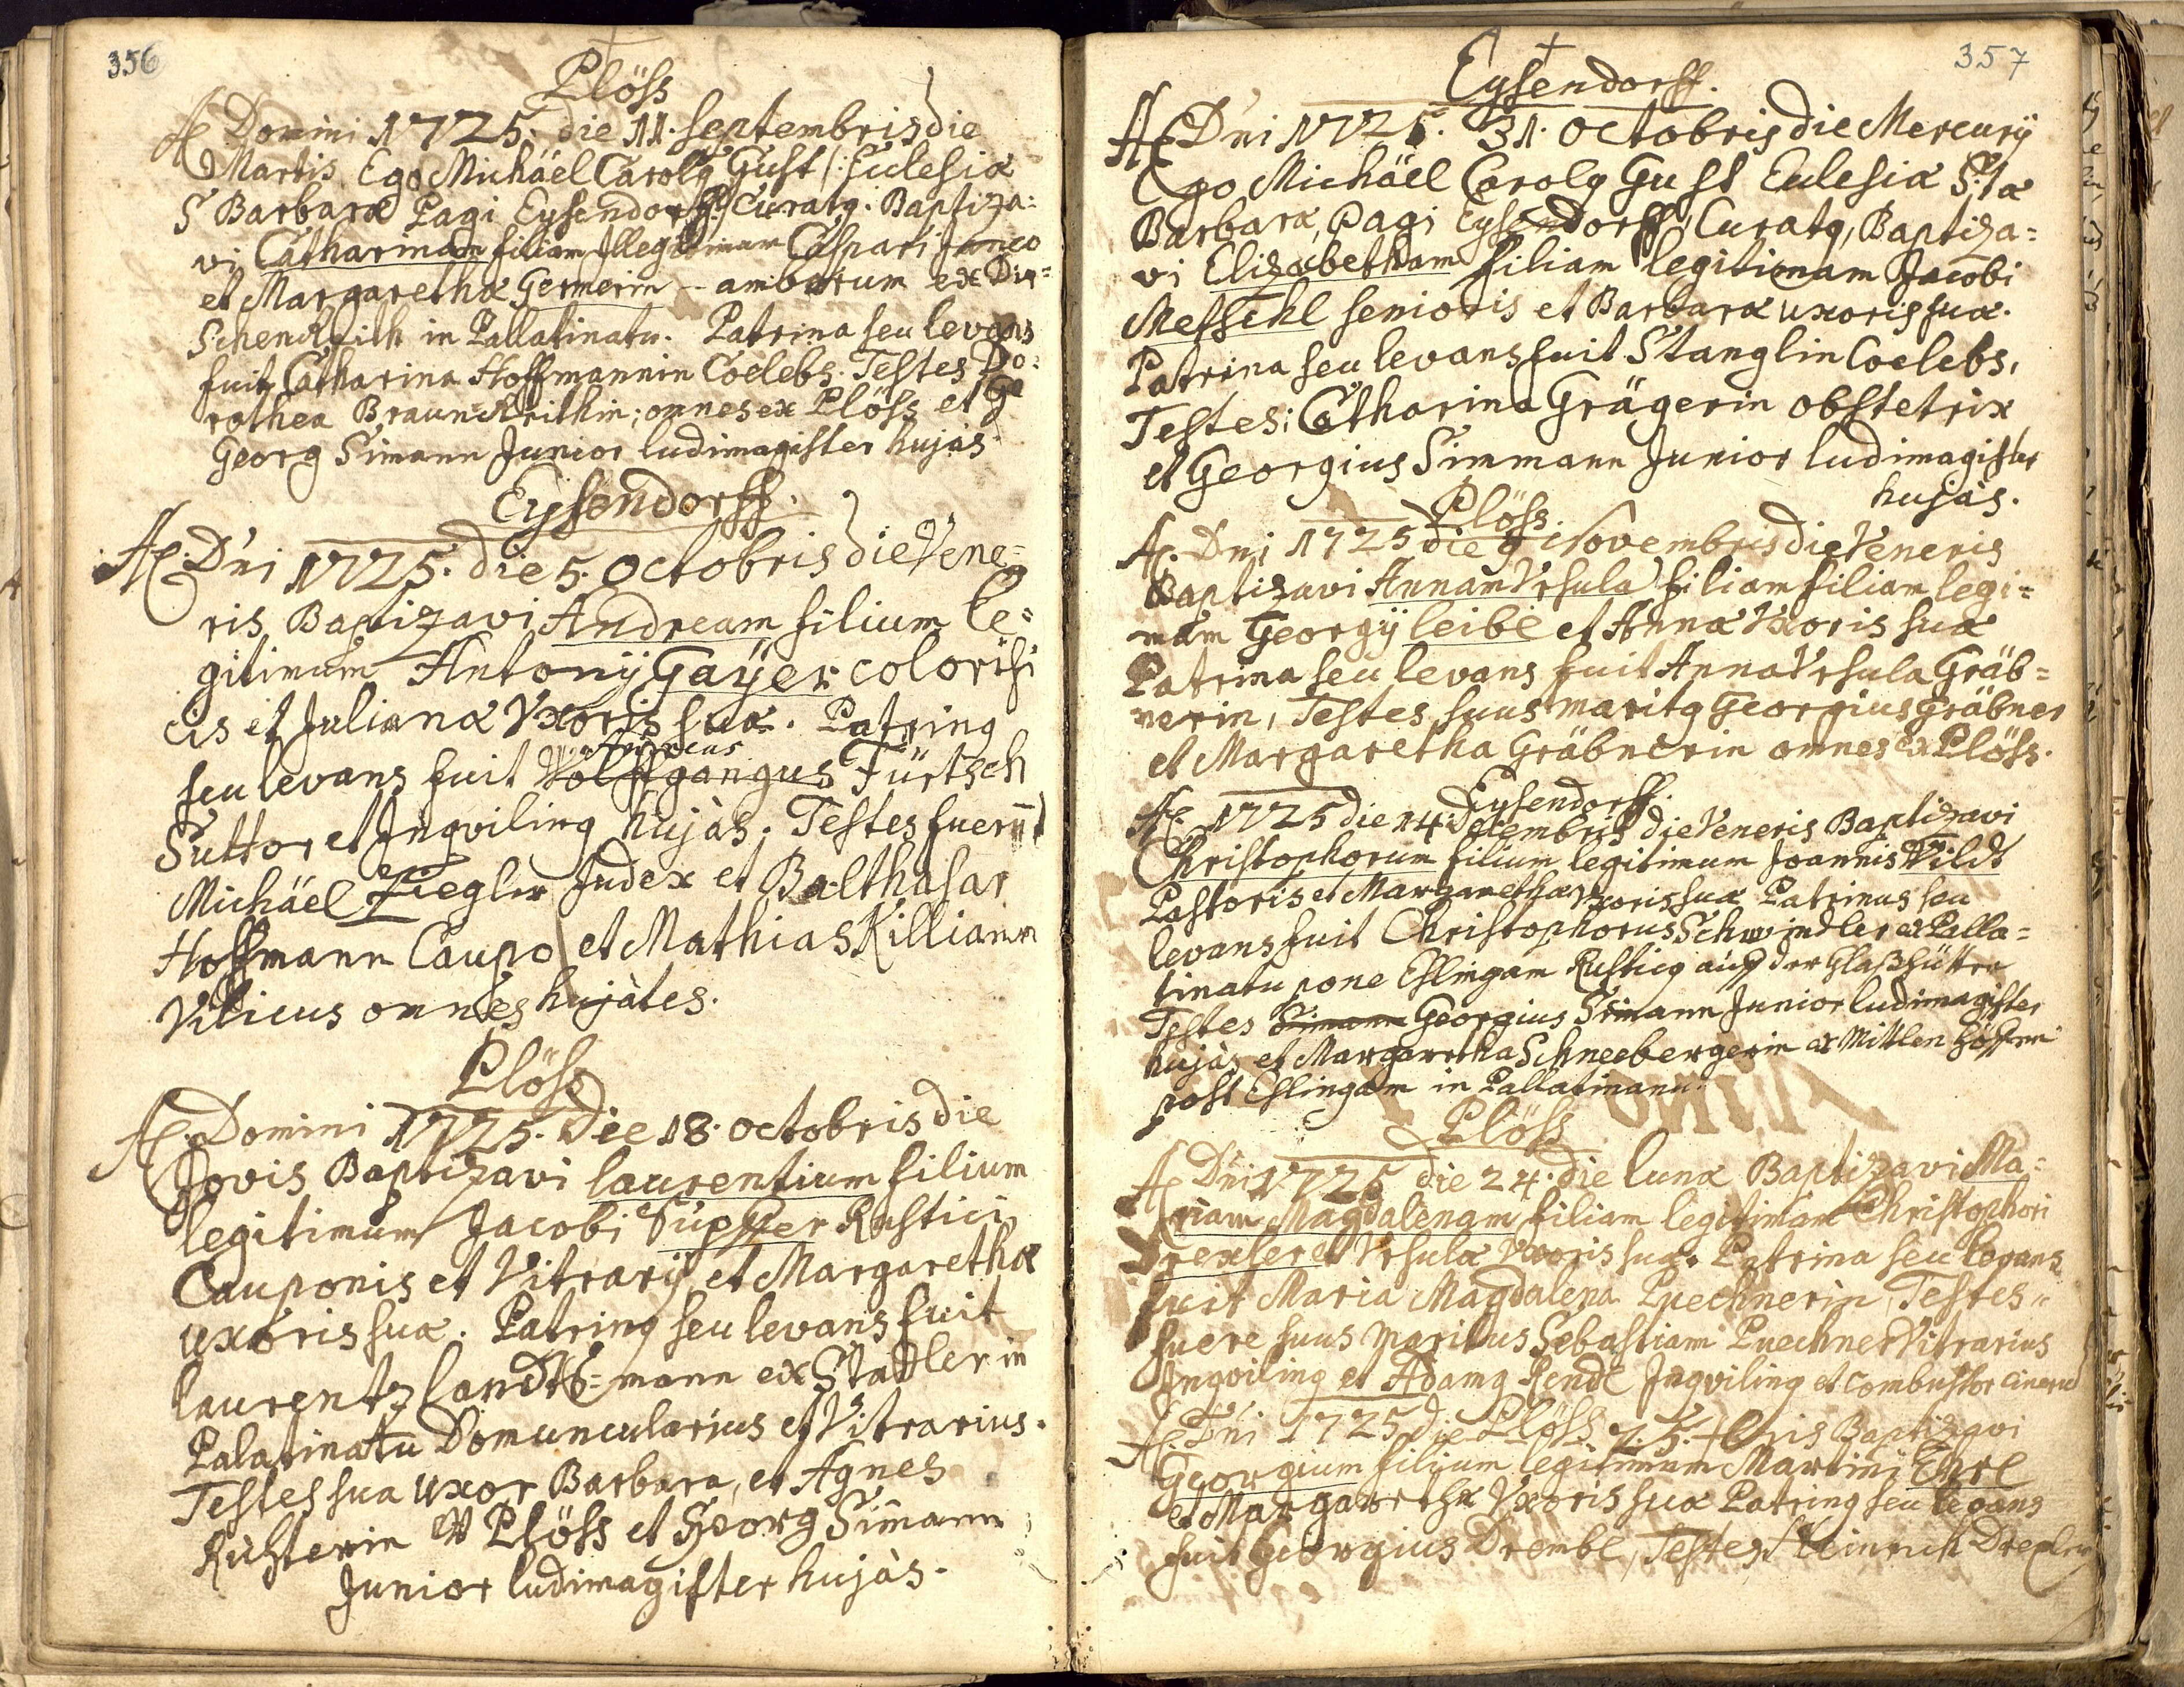 356
Plöss
Ao Domini 1725. die 11. Septembris die
Martis Ego Michäel Carolg Gust /: Eulesiæ
S Barbaræ Pagi Eysendorff :/ Curatg. Baptiza:
vi Catharinam filiam Illegitimam Caspari
et Margarethæ Germerin -- amborum ex Dir=
Schenckrith in Pallatinatu. Patrina seu levans
fuit Catharina Hoffmannin Coelebs. Testes Do:
rothea Braunckrithin; omnes ex Plöss et Ge
Georg Simann Junior ludimagister hujàs.
Eysendorff.
Ao. D'ni 1725. die 5. Octobris die Vene=
ris Baptizavi Andream filium le=
gitimum Antonij Gaÿer colorifi
cis et Julianæ Vxoris suæ. Patring
seu levans fuit Wolffgangus Fürtsch
Suttor et Inqviling hujàs. Testes fuerūt
Michäel Ziegler Judex et Balthasar
Hoffmann Caupo et Mathias Killiann
Vilicus omnes hujàtes.
Plöss
Ao. Domini 1725. Die 18. Octobris die
Jovis Baptizavi laurentium filium
legitimum Jacobi Supffer Rustici
Cauponis et Vitrarÿ et Margarethæ
uxoris suæ. Patring seu levans fuit
laurentz landts=mann ex Stadler in
Palatinatu Domuncularius et Vitrarius.
Testes sua uxor Barbara, et Agnes
Richterin ex Plöss et Georg Simann
Junior ludimagister hujàs.
357
Eysendorff.
Ao D'ni 1725. 31. Octobris die Mercurÿ
Ego Michäel Carolg Gust Eulesiæ S:tæ
Barbaræ, Pagi Eysendorff, Curatg, Baptiza=
vi Elizabetham filiam legitimam Jacobi
Messehl senioris et Barbaræ uxoris suæ.
Patrina seu levans fuit Stanglin Coelebs,
Testes: Catharina Grägerin obstetrix
et Georgius Simmann Junior ludimagister
hujàs.
Plöss.
Ao. Dni 1725 die 9 Novembris die Veneris
Baptizavi Annam Vrsula filiam filiam legi=
mam Georgÿ leibl et Annæ Vxoris suæ
Patrina seu levans fuit Anna Vrsula Gräb=
nerin, Testes suus maritg Georgius Gräbner
et Margaretha Gräbnerin omnes ex Plöss.
Eysendorff.
Ao. 1725 die 14. Decembris die Veneris Baptizavi
Christophorum filium legitimum Joannis Wildt
Pastoris et Margarethæ Vxoris suæ Patrinus seu
levans fuit Christophorus Schwindler ex Palla=
tinatu pone Eslingam Rusticg auff der Glaßhütten
Testes Simann Georgius Simann Junior ludimagister
hujàs et Margaretha Schneebergerin ex Mittlen Höffen
post Eslingam in Pallatinanu.
Plöss
Ao D'ni 1725 die 24. die lunæ Baptizavi Ma=
riam Magdalenam filiam legitimam Christophori
Drexler et Vrsulæ Vxoris suæ. Patrina seu levans
fuit Maria Magdalena Puechnerin, Testes
fuere suus Maritus Sebastiam Puechner Vitrarius
Inqviling et Adamg Rendl Inqviling et combustor cinerū
Plöss
Ao. Dni 1725 die 25. Xbris Baptizavi
Georgium filium legitimum Martini Ehrl
et Margarethæ Vxoris suæ Patring seu levans
fuit Georgius Drembl, Testes Heinrich Drexler